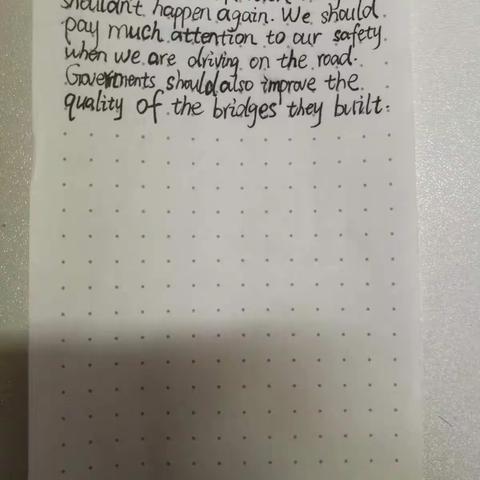 shouldn't happen again. We should
pay much attention to our safety
when we are driving on the road.
Goverments should also improve the
quality of the bridges they built.